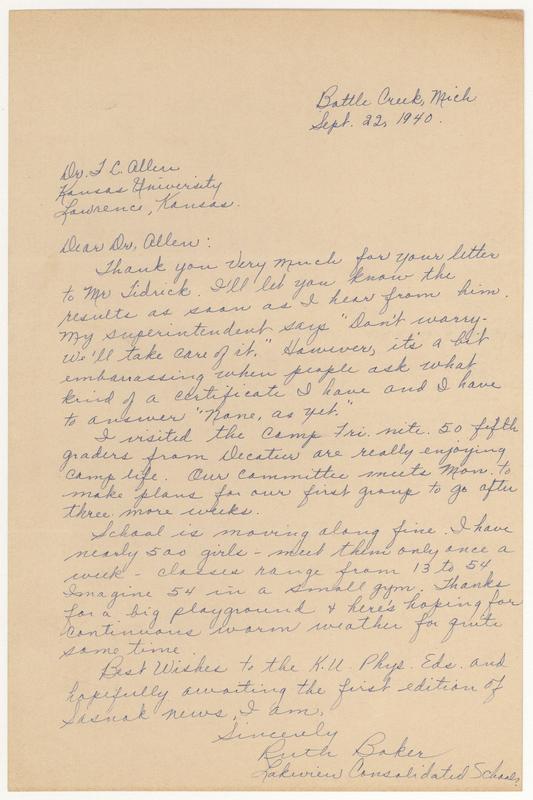 Battle Creek, Mich
Sept. 22, 1940.
Dr. F C. Allen
Kansas University
Lawrence, Kansas.
Dear Dr. Allen:
Thank you very much for your letter
to Mr Tidrick. I'll let you know the
results as soon as I hear from him.
My superintendent says "Don't worry-
We'll take care of it." However, it's a bit
embarrassing when people ask what
kind of a certificate I have and I have
to answer "None, as yet."
I visited the Camp Fri. nite. 50 fifth
graders from Decatur are really enjoying
camp life. Our committee meets Mon. to
make plans for our first group to go after
three more weeks.
School is moving along fine. I have
nearly 500 girls - meet them only once a
week - classes range from 13 to 54.
Imagine 54 in a small gym. Thanks
for a big playground & here's hoping for
continuous warm weather for quite
some time.
Best Wishes to the K.U. Phys. Eds. and
hopefully awaiting the first edition of
Sasnak news, I am,
Sincerely
Ruth Baker
Lakeview Consolidated Schools